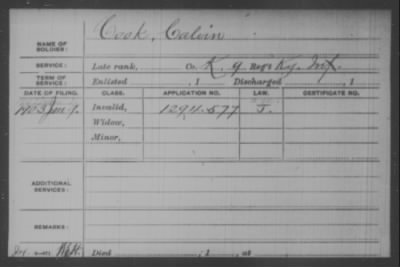 Cook, Calvin
NAME OF SOLDIER:
SERVICE: Late rank, Co. K, 9 Reg't Ky. Inf.
TERM OF SERVICE: Enlisted , 1 Discharged , 1
DATE OF FILING. CLASS. APPLICATION NO. LAW. CERTIFICATE NO.
1903 Jan 9. Invalid, 1294.577 J.
Widow,
Minor,
ADDITIONAL SERVICES:
REMARKS:
Died , 1 , at